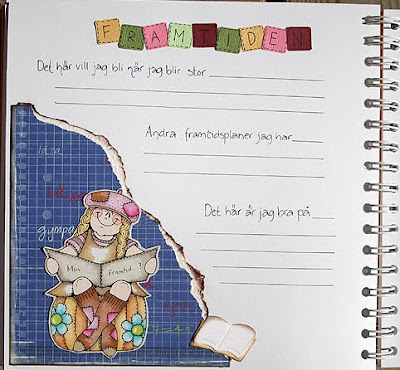 FRAMTIDEN
Det här vill jag bli när jag blir stor
Andra framtidsplaner jag har
Det här är jag bra på
läsa
gympa
Min framtid!